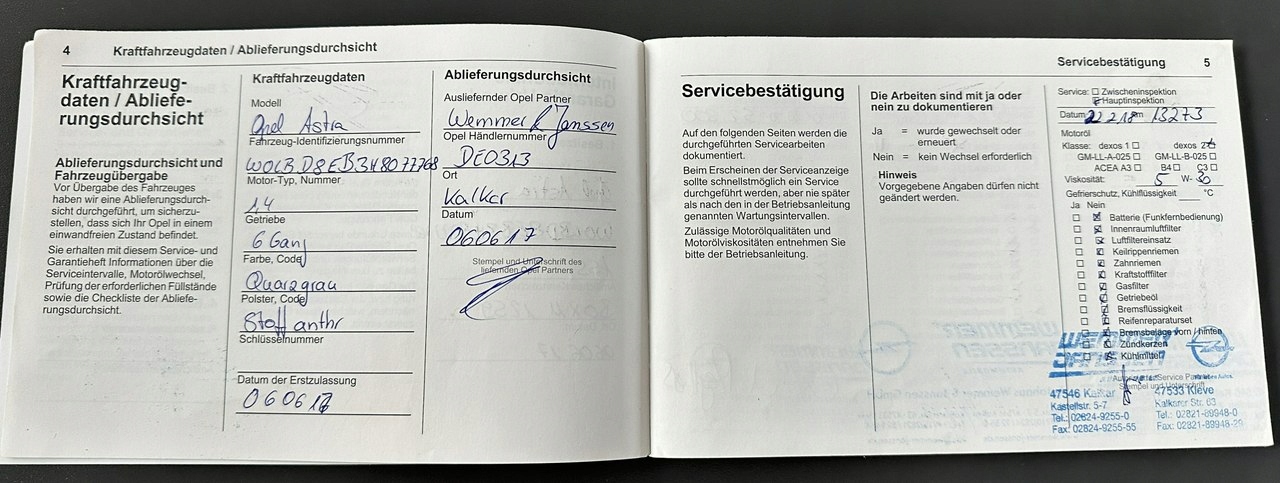 4 Kraftfahrzeugdaten / Ablieferungsdurchsicht
Kraftfahrzeug-
daten / Abliefe-
rungsdurchsicht
Ablieferungsdurchsicht und
Fahrzeugübergabe
Vor Übergabe des Fahrzeuges
haben wir eine Ablieferungsdurch-
sicht durchgeführt, um sicherzu-
stellen, dass sich Ihr Opel in einem
einwandfreien Zustand befindet.
Sie erhalten mit diesem Service- und
Garantieheft Informationen über die
Serviceintervalle, Motorölwechsel,
Prüfung der erforderlichen Füllstände
sowie die Checkliste der Abliefe-
rungsdurchsicht.
Kraftfahrzeugdaten
Modell
Opel Astra
Fahrzeug-Identifizierungsnummer
Motor-Typ, Nummer
14
Getriebe
6 Gang
Farbe, Code
Quarzgrau
Polster, Code
Stoff anthr
Schlüsselnummer
Datum der Erstzulassung
Ablieferungsdurchsicht
Ausliefernder Opel Partner
Wemmer & Janssen
Opel Händlernummer
DE0313
Ort
Kalkar
Datum
060617
Stempel und Unterschrift des
liefernden Opel Partners
Servicebestätigung 5
Servicebestätigung
Auf den folgenden Seiten werden die
durchgeführten Servicearbeiten
dokumentiert.
Beim Erscheinen der Serviceanzeige
sollte schnellstmöglich ein Service
durchgeführt werden, aber nie später
als nach den in der Betriebsanleitung
genannten Wartungsintervallen.
Zulässige Motorölqualitäten und
Motorölviskositäten entnehmen Sie
bitte der Betriebsanleitung.
Die Arbeiten sind mit ja oder
nein zu dokumentieren
Ja = wurde gewechselt oder
erneuert
Nein = kein Wechsel erforderlich
Hinweis
Vorgegebene Angaben dürfen nicht
geändert werden.
Service: Zwischeninspektion
Hauptinspektion
Datum 22.2.18 km 13273
Motoröl
Klasse: dexos 1 dexos 2
GM-LL-A-025 GM-LL-B-025
ACEA A3 B4 C3
Viskosität: 5 W- 30
Gefrierschutz, Kühlflüssigkeit °C
Ja Nein
Batterie (Funkfernbedienung)
Innenraumluftfilter
Luftfiltereinsatz
Keilrippenriemen
Zahnriemen
Kraftstofffilter
Gasfilter
Getriebeöl
Bremsflüssigkeit
Reifenreparaturset
Bremsbeläge vorn / hinten
Zündkerzen
Kühlmittel
Stempel und Unterschrift
47546 Kalkar 47533 Kleve
Kastellstr. 5-7 Kalkarer Str. 63
Tel.: 02824-9255-0 Tel.: 02821-89948-0
Fax: 02824-9255-55 Fax: 02821-89948-29